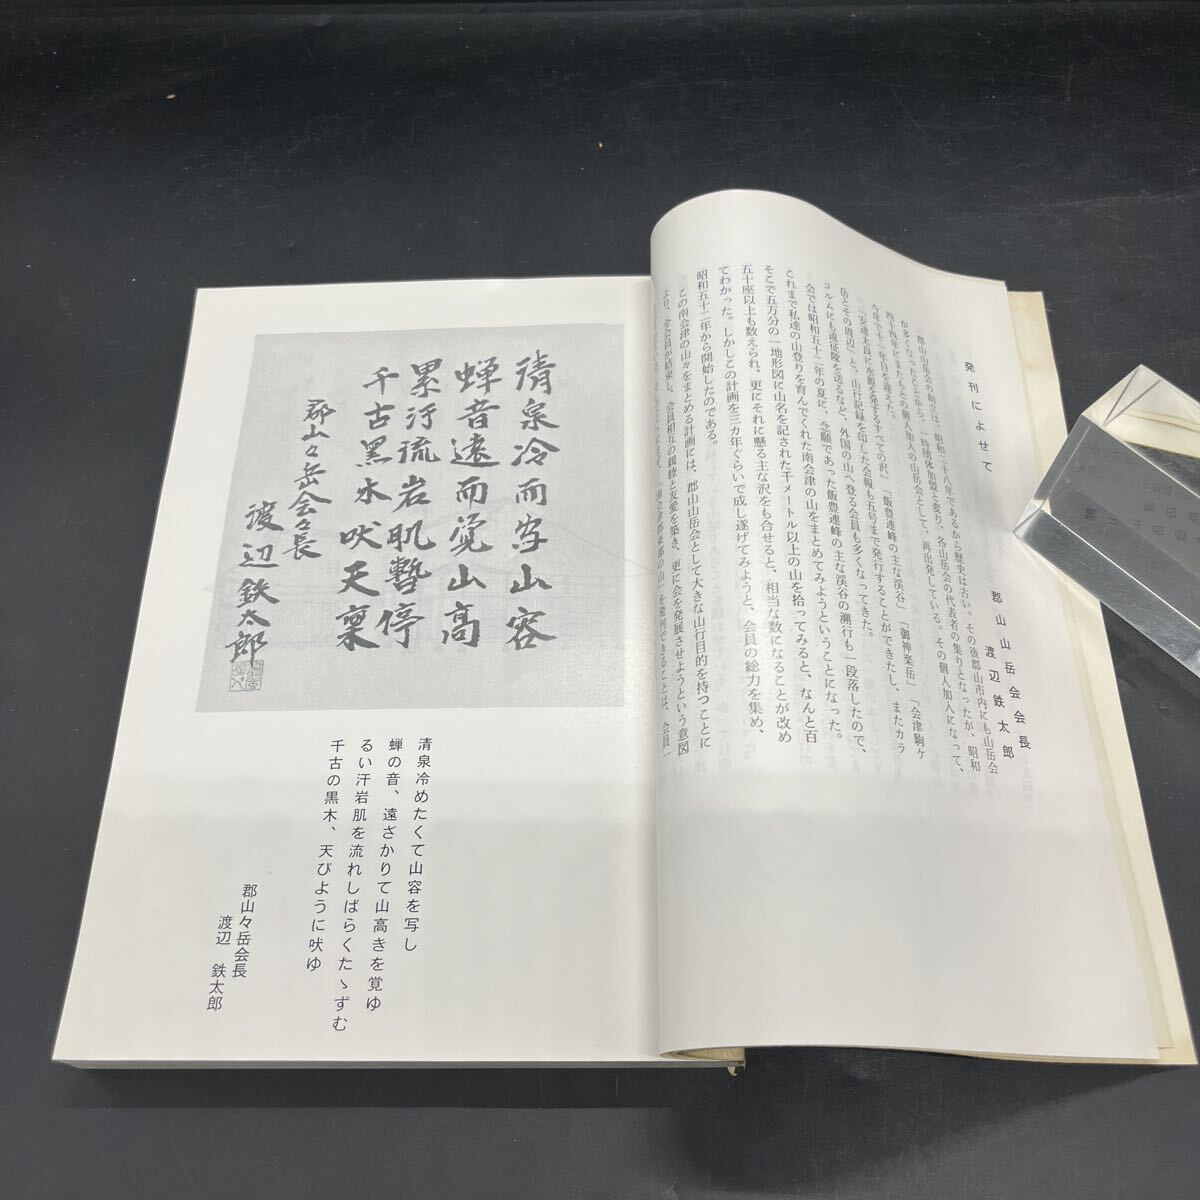 発刊によせて
郡山山岳会会長
渡辺鉄太郎
郡山山岳会の創立は、昭和二十八年であるから歴史は古い。その後郡山市内にも山岳会
が多くなったことから、一時団体加盟と変り、各山岳会の代表者の集りとなったが、昭和
四十四年にまたもとの個人加入の山岳会として、再出発している。その個人加入になって、
今年で十二年目を迎えた。
「安達太良に水源を発するすべての沢」「飯豊連峰の主な渓谷」「御神楽岳」「会津駒ケ
岳とその周辺」と、山行記録を印した会報も五号まで発行することができたし、またカラ
コルムにも遠征隊を送るなど、外国の山へ登る会員も多くなってきた。
会では昭和五十二年の夏に、念願であった飯豊連峰の主な渓谷の溯行も一段落したので、
これまで私達の山登りを育んでくれた南会津の山をまとめてみようということになった。
そこで五万分の一地形図に山名を記された千メートル以上の山を拾ってみると、なんと百
五十座以上も数えられ、更にそれに懸る主な沢をも合せると、相当な数になることが改め
てわかった。しかしこの計画を三カ年ぐらいで成し遂げてみようと、会員の総力を集め、
昭和五十二年から開始したのである。
この南会津の山々をまとめる計画には、郡山山岳会として大きな山行目的を持つことに
より、全会員が結束し、会員相互の親睦と友愛を築き、更に会を発展させようという意図
清泉冷而写山容
蝉音遠而覚山高
累汗流岩肌暫停
千古黒木吠天稟
郡山々岳会々長
渡辺鉄太郎
清泉冷めたくて山容を写し
蝉の音、遠ざかりて山高きを覚ゆ
るい汗岩肌を流れしばらくたゝずむ
千古の黒木、天ぴように吠ゆ
郡山々岳会長
渡辺 鉄太郎